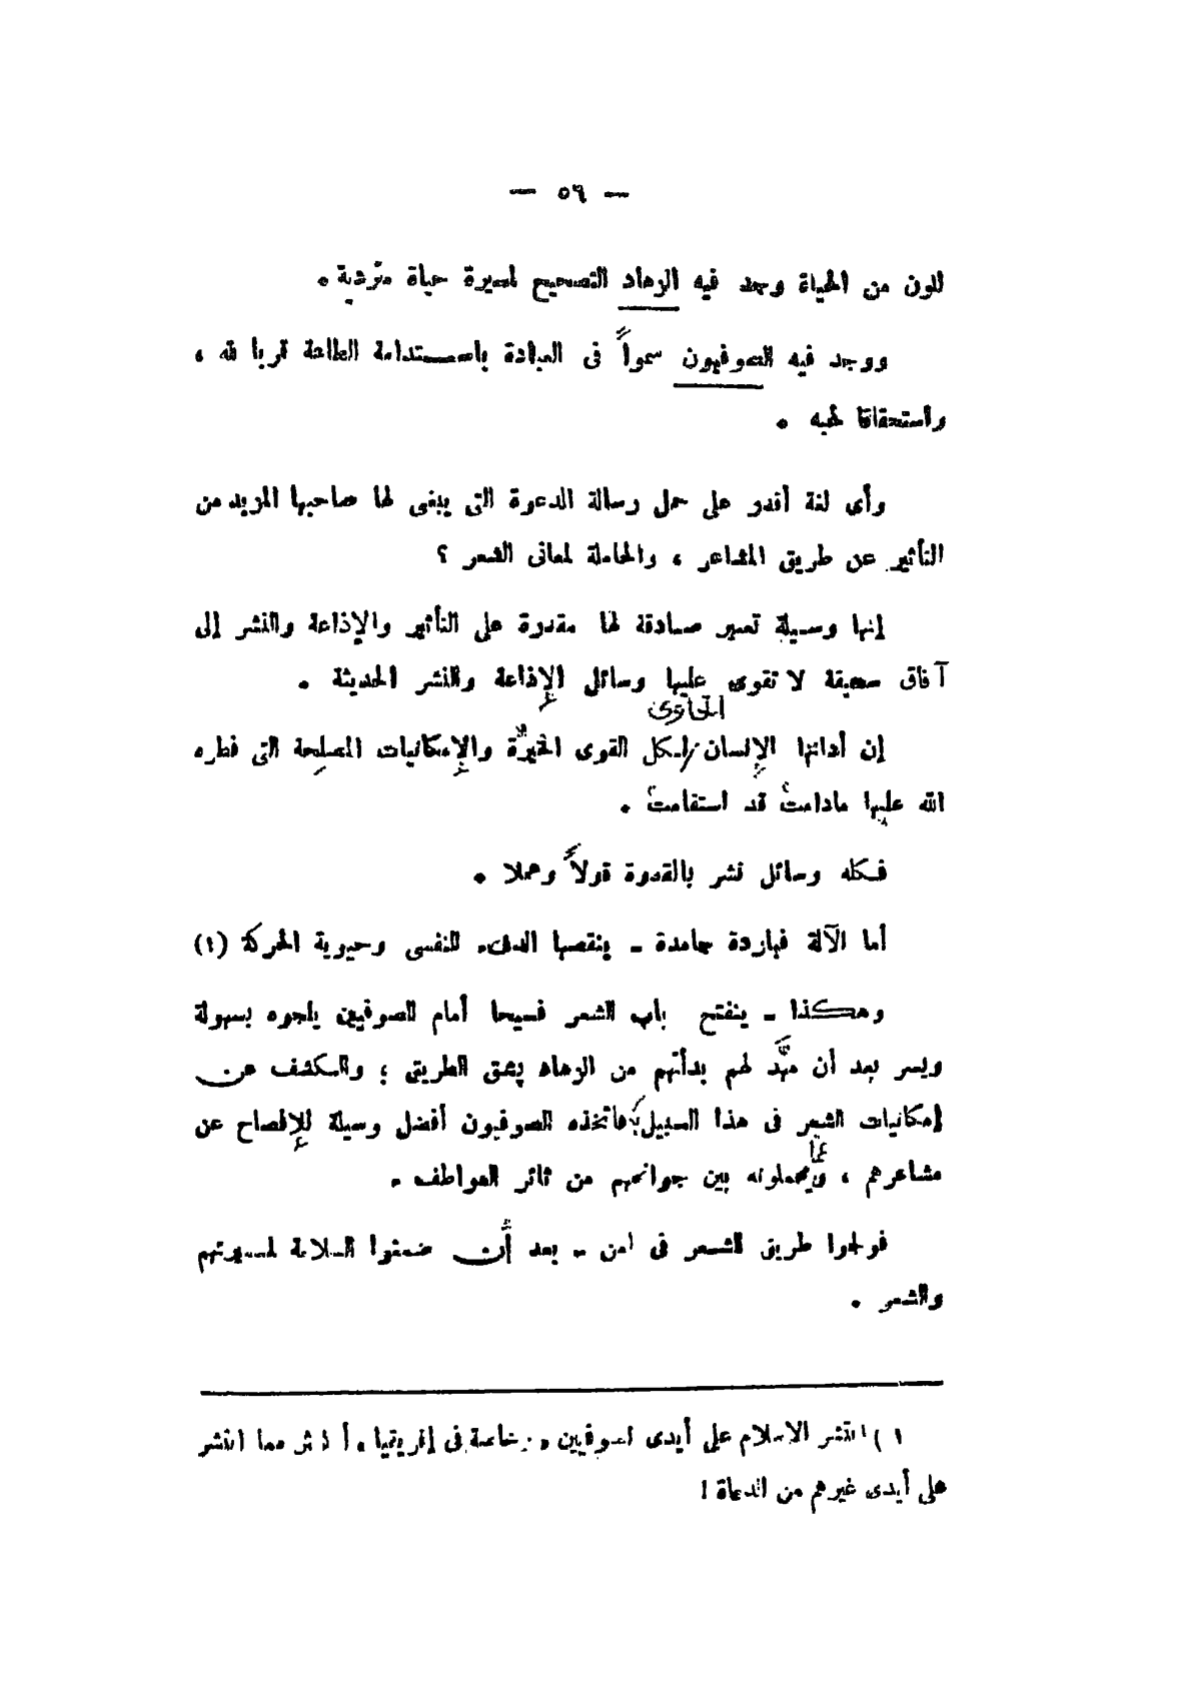 — ٥٦ —
للون من الحياة وجد فيه الزهاد التصحيح لمسيرة حياة متردية .
ووجد فيه الصوفيون سمواً فى العبادة باستدامة الطاعة قربا لله ،
واستحقاقا لحبه .
وأى لغة أقدر على حمل رسالة الدعوة التى يبغى لها صاحبها المزيد من
التأثير عن طريق المشاعر ، والحاملة لمعانى الشعر ؟
إنها وسيلة تعبير صادقة لها مقدرة على التأثير والإذاعة والنشر إلى
آفاق سحيقة لا تقوى عليها وسائل الإذاعة والنشر الحديثة .
الحاوى
إن أداتها الإنسان لكل القوى الخيرة والإمكانيات الصالحة التى فطره
الله عليها مادامت قد استقامت .
فكله وسائل نشر بالقدوة قولاً وعملا .
أما الآلة فباردة جامدة - ينقصها الدفء النفسى وحيوية الحركة (١)
وهكذا - ينفتح باب الشعر فسيحا أمام الصوفيين يلجوه بسهولة
ويسر بعد أن مهَّد لهم بدأتهم من الزهاد بشق الطريق ؛ والكشف عن
إمكانيات الشعر فى هذا السبيل فاتخذه الصوفيون أفضل وسيلة للإفصاح عن
عما
مشاعرهم ، ويحملونه بين جوانحهم من ثائر العواطف .
فولجوا طريق الشعر فى أمن - بعد أن ضمنوا السلامة لمسيرتهم
والشعر .
١ ) انتشر الاسلام على أيدى الصوفيين وخاصة فى إفريقيا ، أكثر مما انتشر
على أيدى غيرهم من الدعاة !